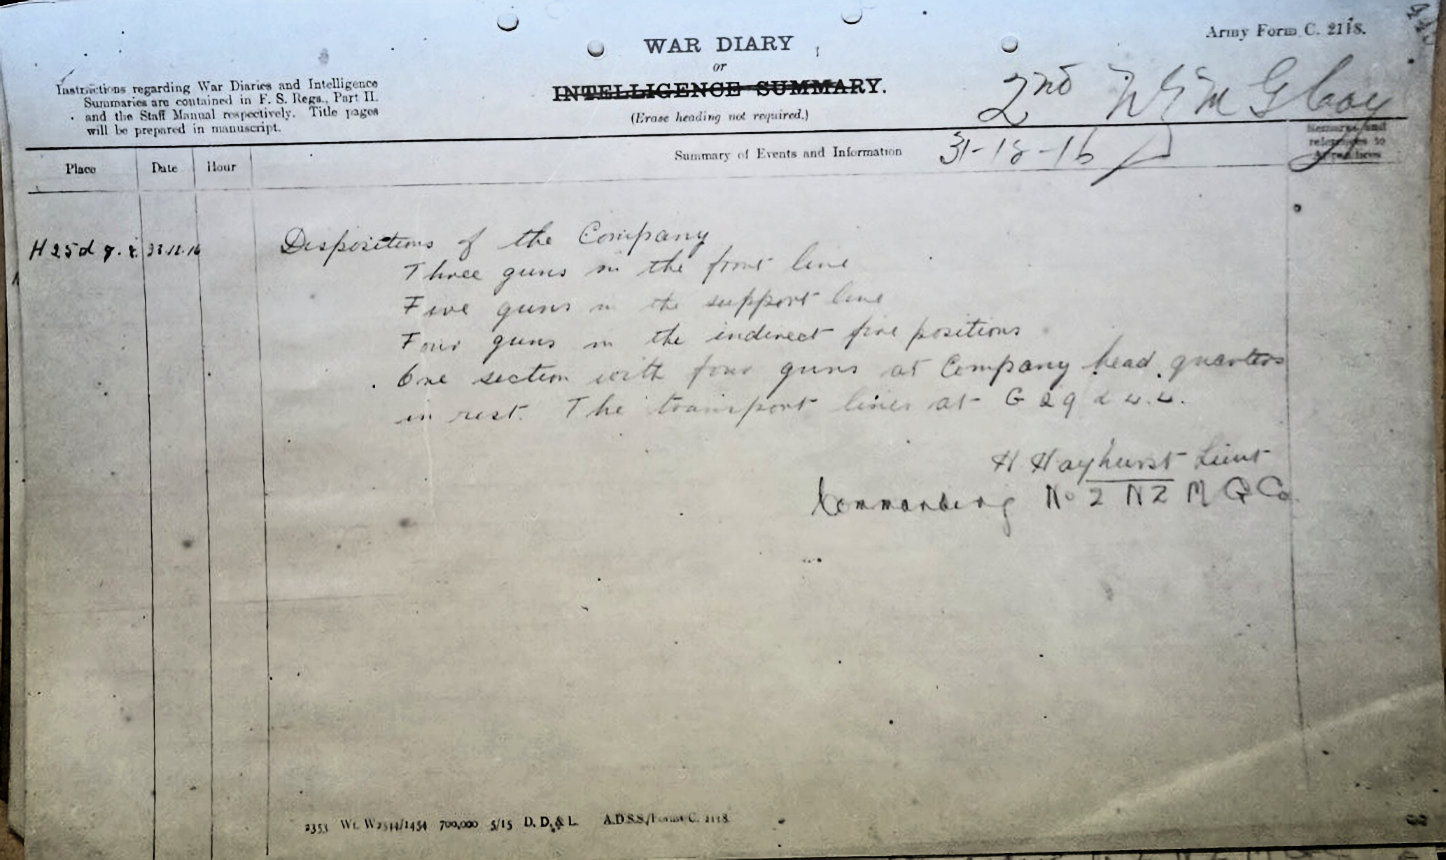 Army Form C. 2118.
WAR DIARY
or
INTELLIGENCE SUMMARY.
(Erase heading not required.)
Instructions regarding War Diaries and Intelligence
Summaries are contained in F. S. Regs., Part II.
and the Staff Manual respectively. Title pages
will be prepared in manuscript.
2nd
Place
Date
Hour
Summary of Events and Information
Remarks and
references to
Appendices
H 25 d
Dispositions of the Company
Three guns in the front line
Five guns in the support line
Four guns in the indirect fire positions
One section with four guns at Company head quarters
in rest. The transport lines at G 29 d 4.4.
H Hayhurst Lieut
Commanding No 2 NZ M G Co.
2353 Wt. W2544/1454 700,000 5/15 D. D. & L. A.D.S.S./Forms/C. 2118.